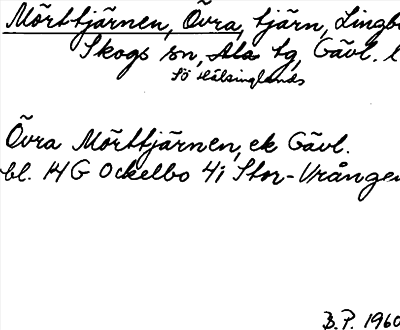 Mörttjärnen, Övra, tjärn, Lingbo
Skogs sn, Ala tg, Gävl. l
Sö Hälsinglands
Övra Mörttjärnen, ek Gävl.
bl. 14 G Ockelbo 4i Stor-Vrången
B.P. 1960